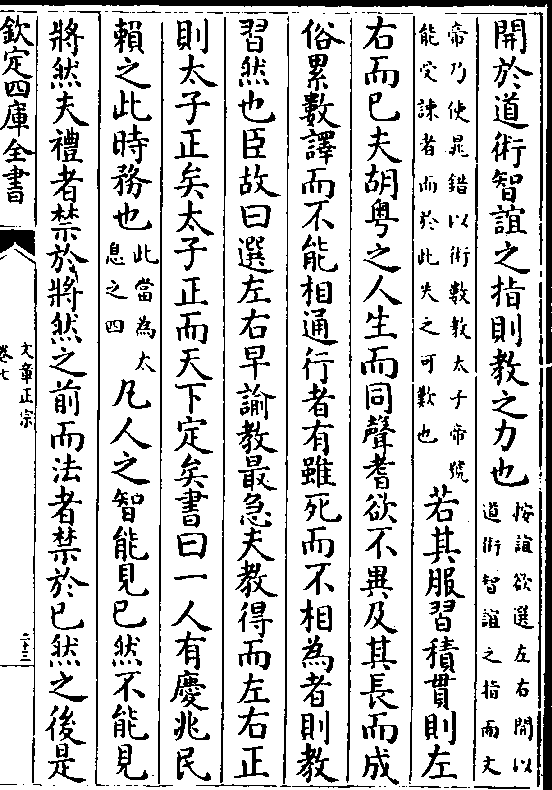 開於道術智誼之指則教之力也按誼欲選左右開以道術智誼之指而文
帝乃使鼂錯以術數教太子帝號能受諫者而於此失之可歎也若其服習積貫則左
右而已夫胡粤之人生而同聲耆欲不異及其長而成
俗累數譯而不能相通行者有雖死而不相為者則教
習然也臣故曰選左右早諭教最急夫教得而左右正
則太子正矣太子正而天下定矣書曰一人有慶兆民
賴之此時務也此當為太息之四凡人之智能見已然不能見
將然夫禮者禁於將然之前而法者禁於已然之後是
欽定四庫全書
文章正宗
卷七
二十三